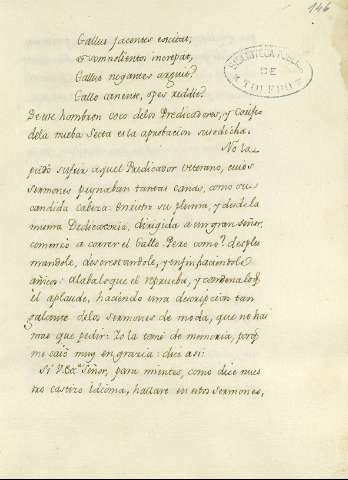 146
Gallus jacentes excitat,
et somnolentos increpat,
Gallus negantes arguit?
Gallo canente, spes reddit?
BIBLIOTECA PUBLICA
DE
TOLEDO
De ese hombron coco de los Predicadores, y corifeo
dela nueba Secta es la aprobacion susodicha.
No la
pudo sufrir aquel Predicador veterano, cuios
sermones peynaban tantas canas, como su
candida cabeza: enristro su pluma, y desde la
misma Dedicatoria, dirigida a un gran señor,
comenzo a correr el Gallo. Pero como? desplu
mandole, descrestandole, y enfin haciendole
añicos: alaba lo que el reprueba, y condena lo q.
el aplaude, haciendo una descripcion tan
galante delos sermones de moda, que no hai
mas que pedir: Yo la tomé de memoria, porq.
me caió muy en gracia: dice asi:
Si V. Exª Señor, para mientes, como dice nues
tro castizo Idioma, hallare en estos sermones,